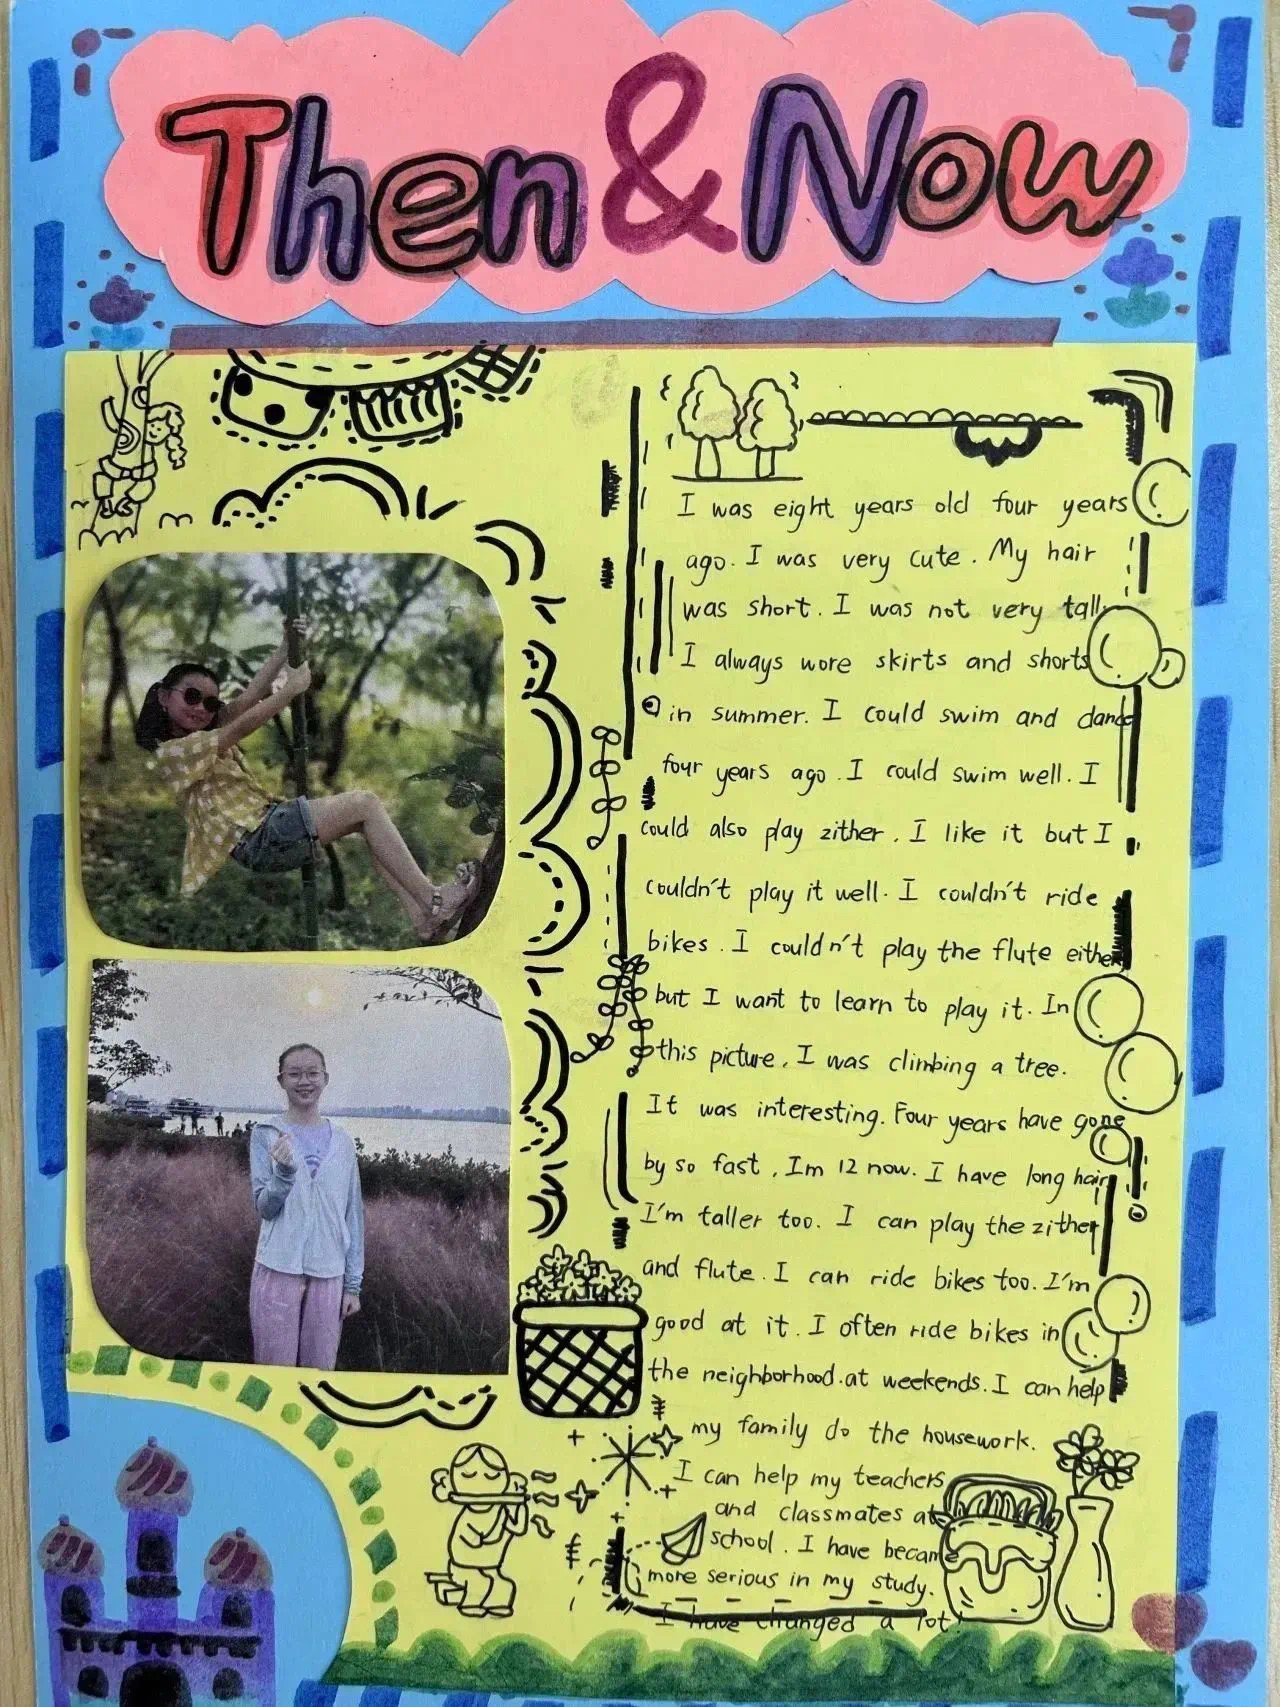 Then & Now
I was eight years old four years
ago. I was very cute. My hair
was short. I was not very tall.
I always wore skirts and shorts
in summer. I could swim and dance
four years ago. I could swim well. I
could also play zither. I like it but I
couldn't play it well. I couldn't ride
bikes. I couldn't play the flute either
but I want to learn to play it. In
this picture, I was climbing a tree.
It was interesting. Four years have gone
by so fast, Im 12 now. I have long hair
I'm taller too. I can play the zither
and flute. I can ride bikes too. I'm
good at it. I often ride bikes in
the neighborhood.at weekends. I can help
my family do the housework.
I can help my teachers
and classmates at
school. I have became
more serious in my study.
I have changed a lot!